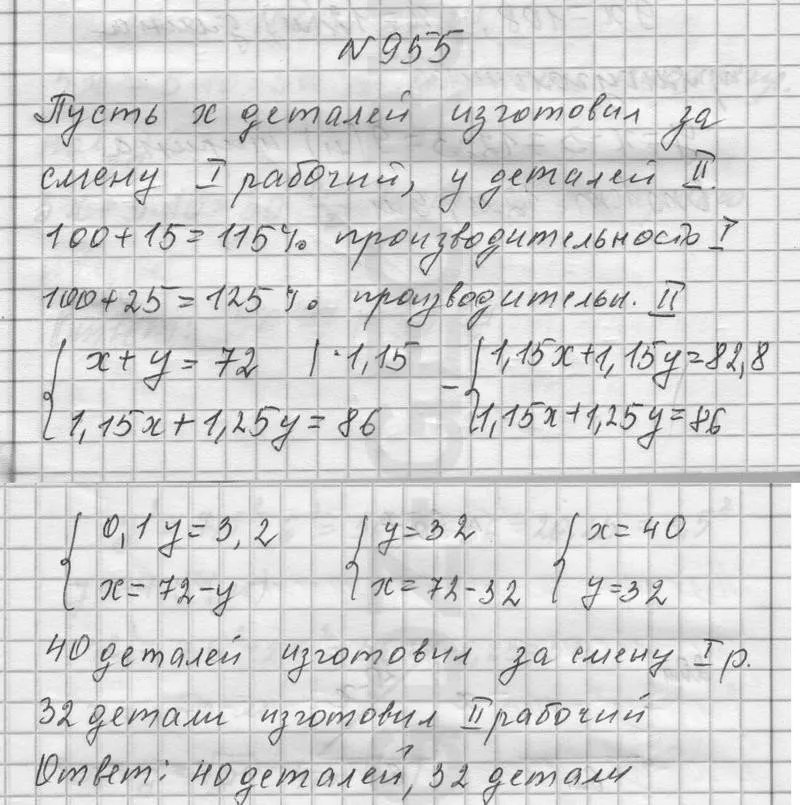 №955
Пусть x деталей изготовил за
смену I рабочий, y деталей II.
100+15=115% производительность I
100+25=125% производительн. II
{ x+y=72 |·1,15 - { 1,15x+1,15y=82,8
{ 1,15x+1,25y=86 { 1,15x+1,25y=86
{ 0,1y=3,2 { y=32 { x=40
{ x=72-y { x=72-32 { y=32
40 деталей изготовил за смену I р.
32 детали изготовил II рабочий
Ответ: 40 деталей, 32 детали